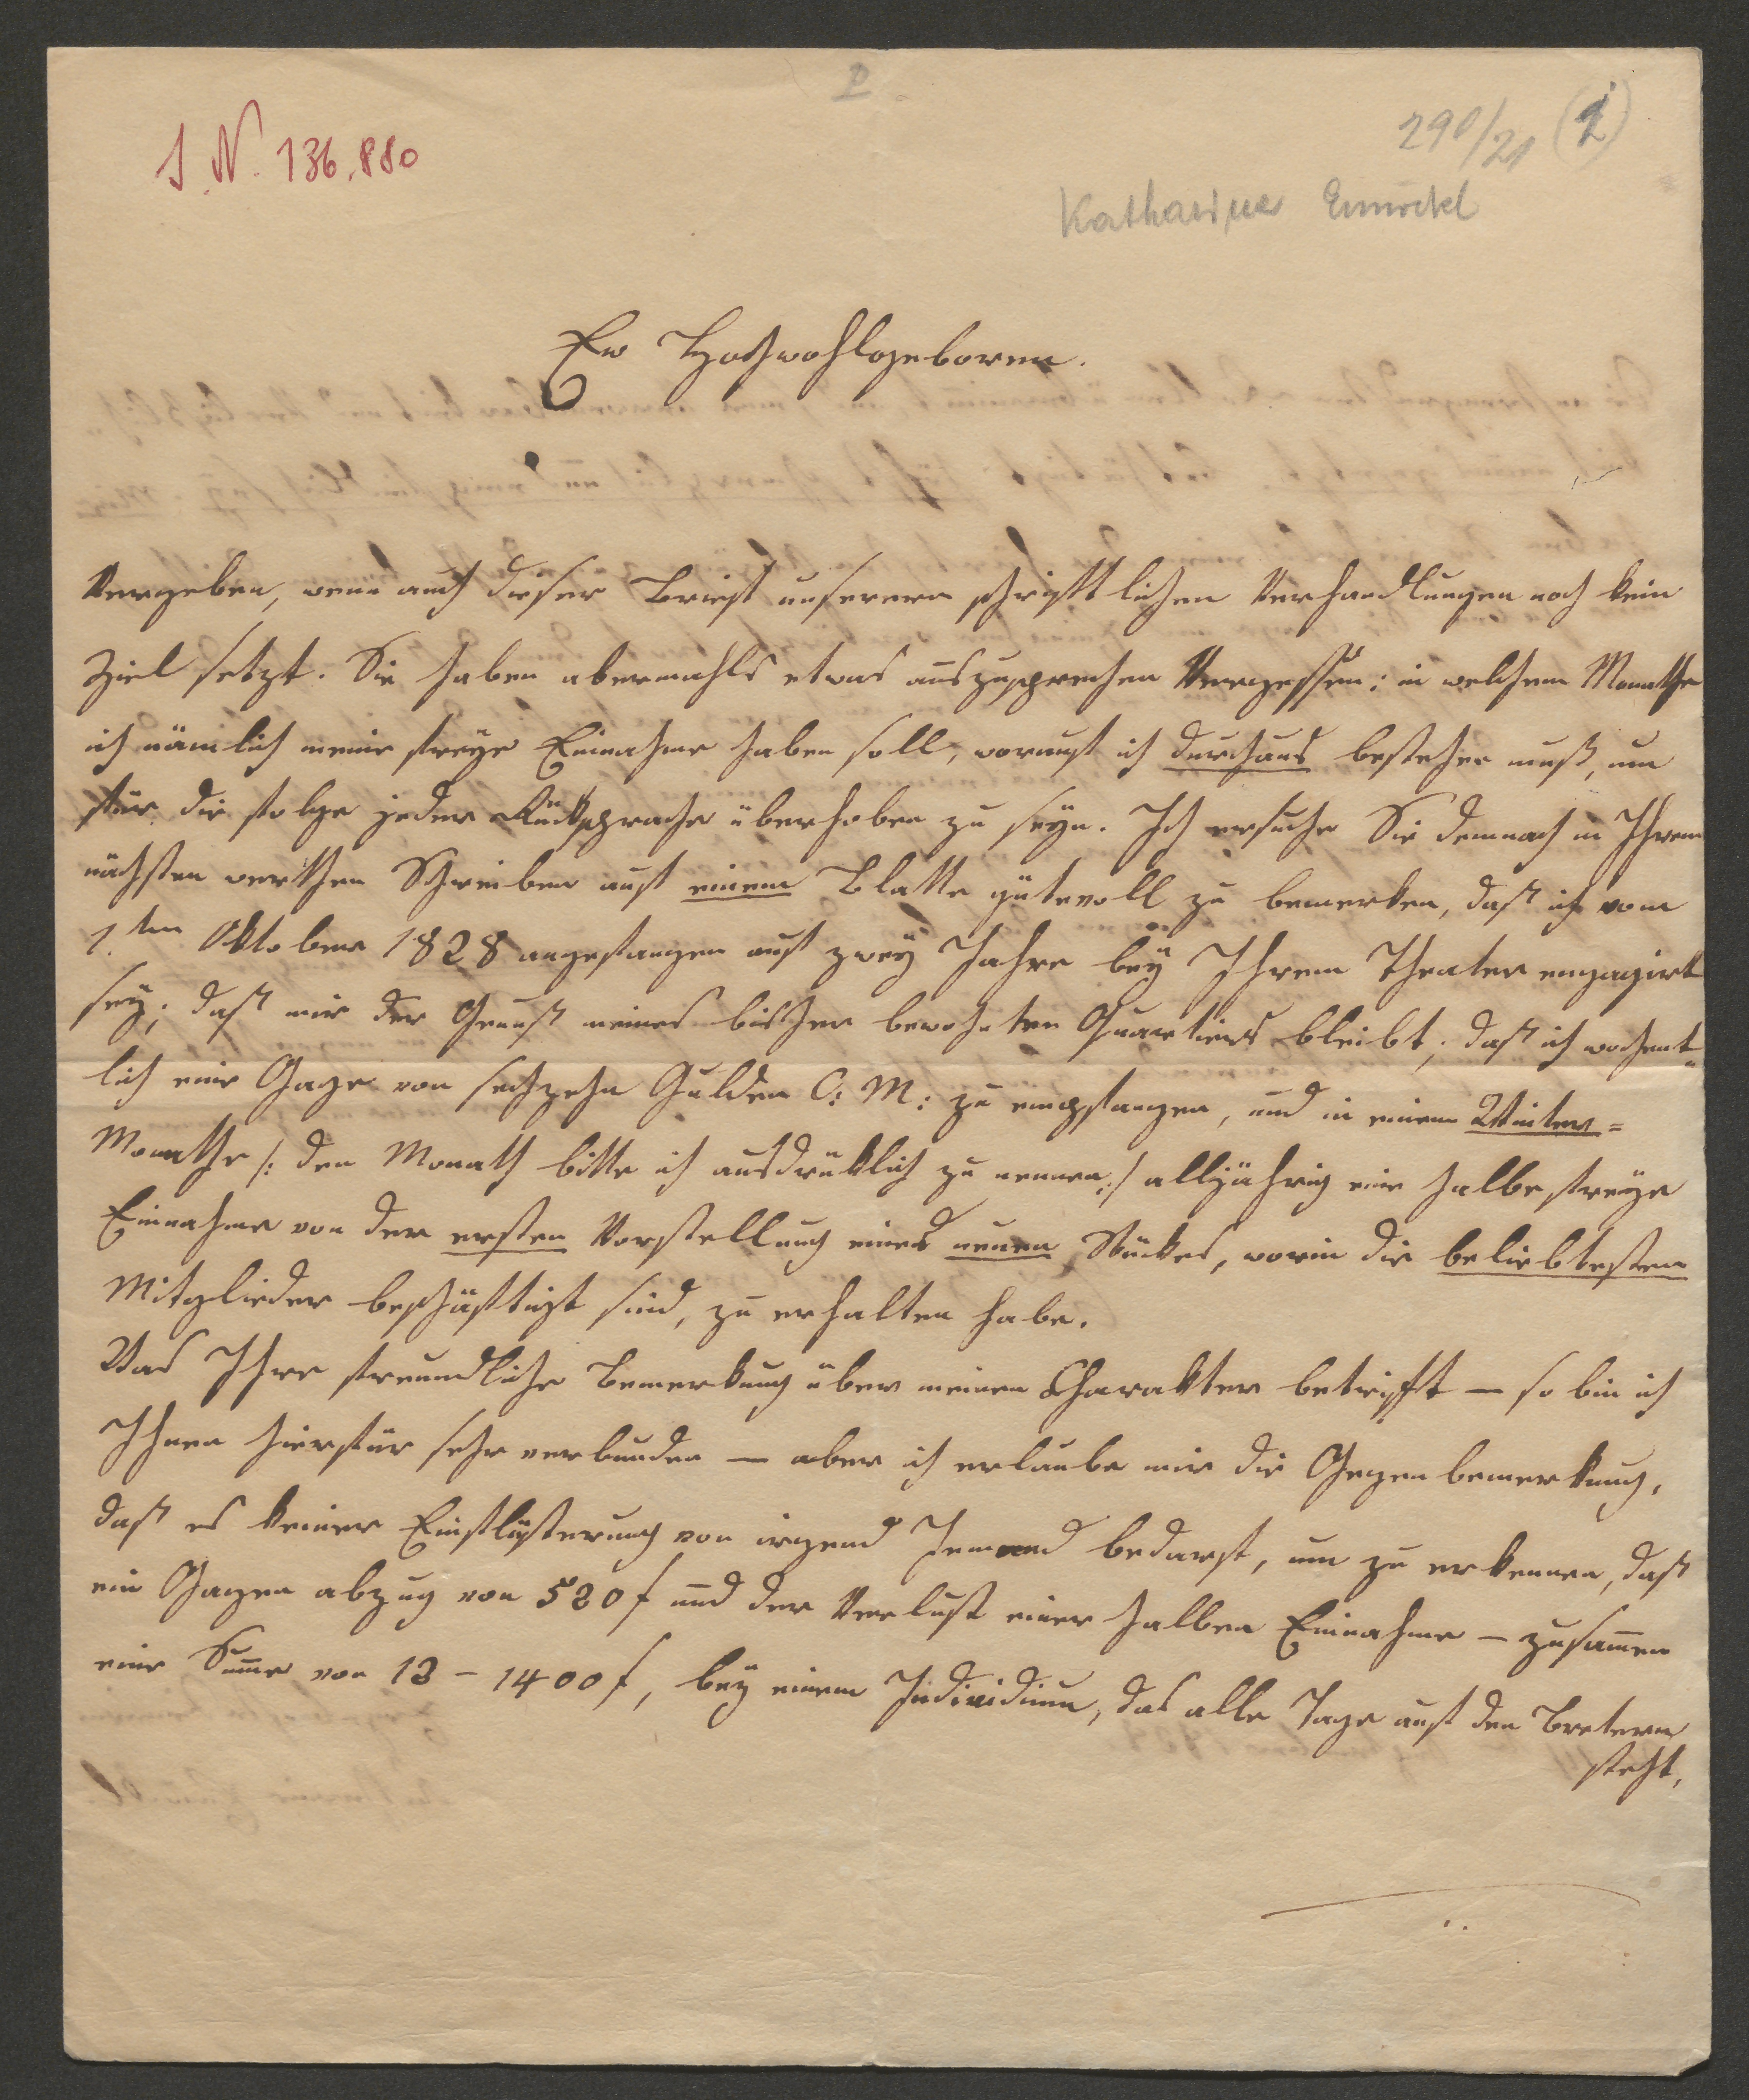 P
I. N. 136.880
290/21 (1)
Katharina Ennöckl
Ew Hochwohlgeboren.
Vergeben, wenn auch dieser Brief unseren schriftlichen Verhandlungen noch kein
Ziel setzt. Sie haben abermahls etwas auszusprechen Vergessen: in welchem Monathe
ich nämlich meine freye Einnahme haben soll, worauf ich durchaus bestehen muß, um
für die Folge jeder Rücksprache überhoben zu seyn. Ich ersuche Sie demnach in Ihrem
nächsten werthen Schreiben auf einem Blatte gütevoll zu bemerken, daß ich vom
1.ten Oktober 1828 angefangen auf zwey Jahre bey Ihrem Theater engagirt
sey; daß mir der Genuß meines bisher bewohnten Quartiers bleibt; daß ich wochent-
lich eine Gage von sechzehn Gulden C: M: zu empfangen, und in einem Winter=
Monathe /: den Monath bitte ich ausdrüklich zu nennen :/ alljährig eine halbe freye
Einnahme von der ersten Vorstellung eines neuen Stückes, worin die beliebtesten
Mitglieder beschäftigt sind, zu erhalten habe.
Was Ihre freundliche Bemerkung über meinen Charakter betrifft — so bin ich
Ihnen hierfür sehr verbunden — aber ich erlaube mir die Gegenbemerkung,
daß es keiner Einflüsterung von irgend Jemand bedarf, um zu erkennen, daß
ein Gagen abzug von 520 f und der Verlust einer halben Einnahme — zusam̄en
eine Sum̄e von 13 - 1400 f, bey einem Individium, das alle Tage auf den Bretern
steht,